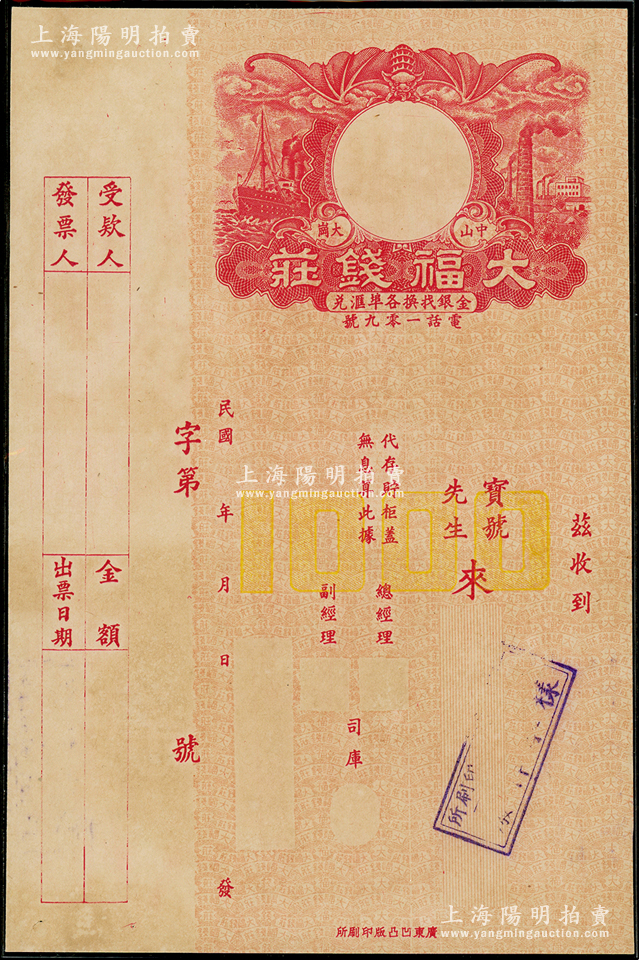 上海陽明拍賣
www.yangmingauction.com
中山
大崗
大福錢莊
金銀找換各埠滙兌
電話一零九號
茲收到
寶號
先生
來
代存貯柜蓋
無息單此據
總經理
副經理
司庫
民國 年 月 日 發
字第 號
受欵人
發票人
金額
出票日期
1000
樣
所刷印
廣東凹凸版印刷所
上海陽明拍賣
www.yangmingauction.com
上海陽明拍賣
www.yangmingauction.com